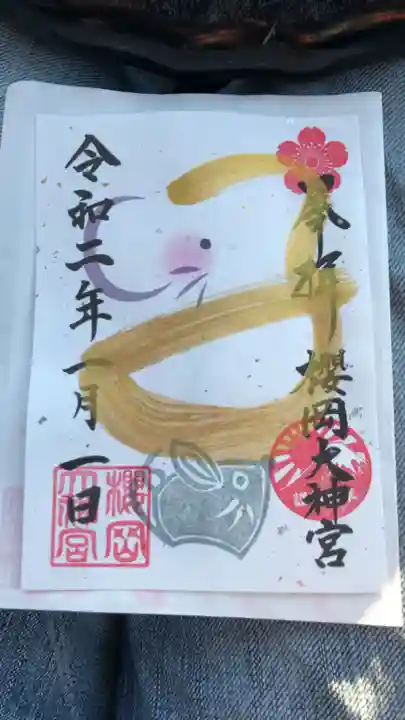 奉拝 櫻岡大神宮
令和二年 一月一日
櫻岡
大神宮